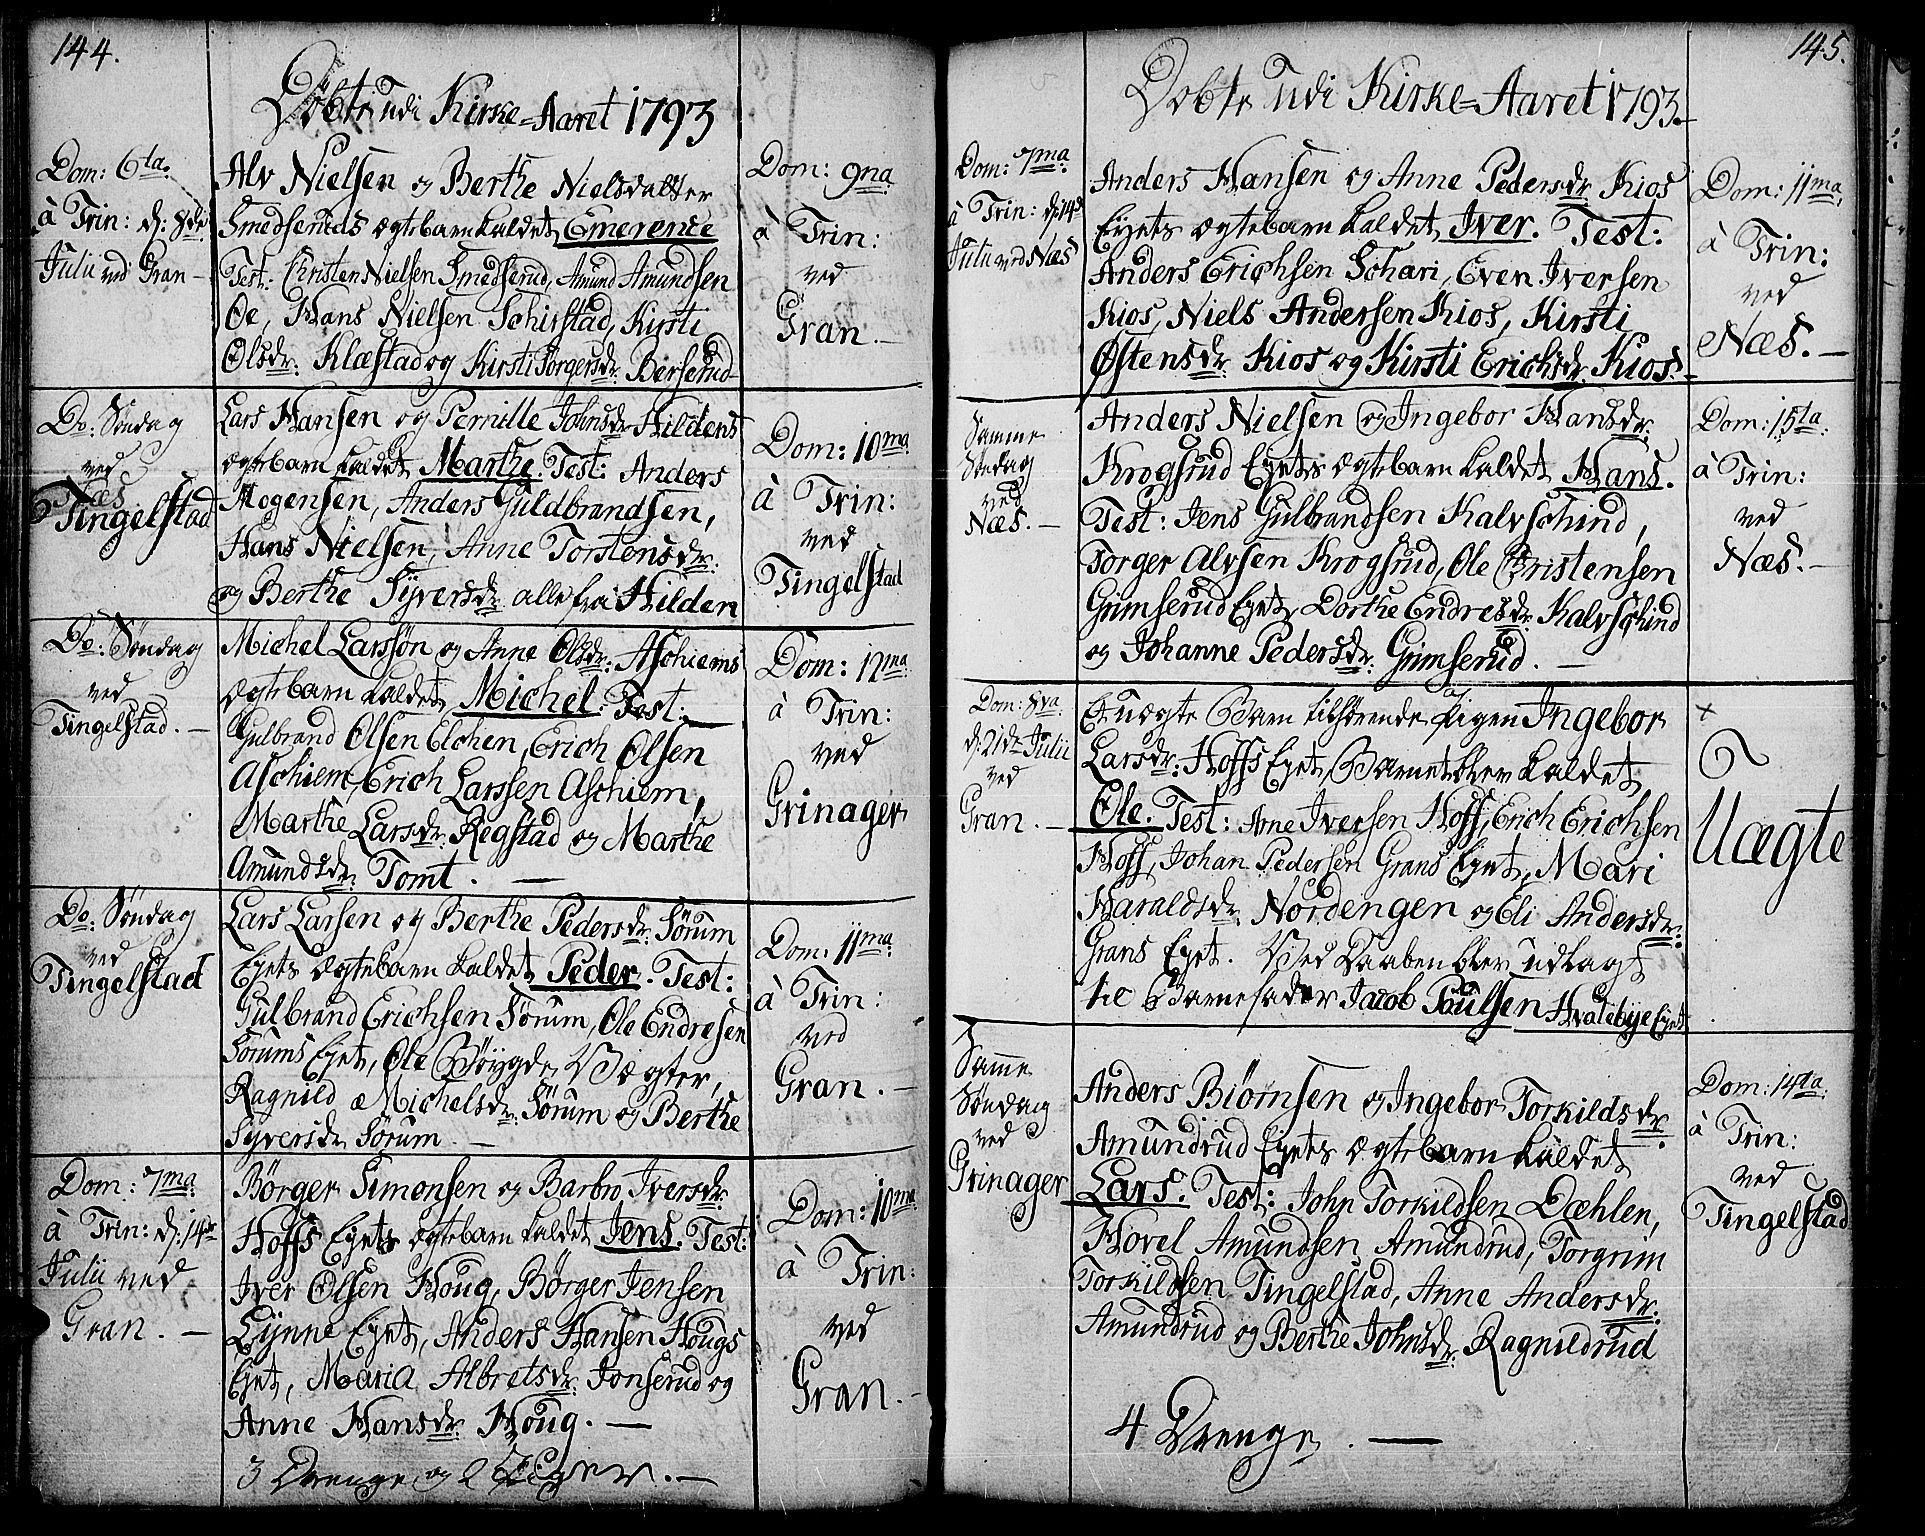 144.
Döbte udi Kirke-Aaret 1793
Dom: 6ta.
à Trin: d: 8de
Julii ved Gran –
Alv Nielsen og Berthe Nielsdatter
Smedseruds ægtebarn kaldet Emerence
Test: Christen Nielsen Smedserud, Amund Amundsen
Oe, Hans Nielsen Schirstad, Kirsti
Olsdr: Klæstad og Kirsti Torgersdr: Berserud
Dom: 9na
à Trin:
ved
Gran. –
Do: Søndag
ved
Næs
Tingelstad
Lars Hansen og Pernille Johnsdr: Hildens
ægtebarn kaldet Marthe. Test: Anders
Mogensen, Anders Guldbrandsen,
Hans Nielsen, Anne Torstensdr:
og Berthe Syversdr: alle fra Hilden
Dom: 10ma
à Trin:
ved
Tingelstad
Do: Søndag
ved
Tingelstad. –
Michel Larssøn og Anne Olsdr: Aschiems
ægtebarn kaldet Michel. Test:
Gulbrand Olsen Elchen, Erich Olsen
Aschiem, Erich Larssen Aschiem,
Marthe Larsdr: Regstad og Marthe
Amundsdr: Tomt. –
Dom: 12ma
à Trin:
ved
Grinager
Do: Søndag
ved
Tingelstad
Lars Larsen og Berthe Pedersdr: Sørum
Ejets ægtebarn kaldet Peder. Test:
Gulbrand Erichsen Sørum, Ole Endresen
Sørums Ejet, Ole Böygde Vægter,
Ragnild Michelsdr: Sørum og Berthe
Syversdr Sørum. –
Dom: 11ma
à Trin:
ved
Gran. –
Dom: 7ma
à Trin: d: 14de
Julii ved
Gran. –
Börger Simonsen og Barbro Iversdr:
Hoffs Ejets ægtebarn kaldet Jens. Test:
Iver Olsen Houg, Börger Jensen
Lynne Ejet, Anders Hansen Hougs
Ejet, Maria Albretsdr: Jonserud og
Anne Hansdr: Houg. –
Dom: 10ma
à Trin:
ved
Gran. –
3 Drenge og 2 Piger. –
145.
Dobte udi Kirke-Aaret 1793.
Dom: 7ma
à Trin: d: 14de
Julii ved Næs
Anders Hansen og Anne Pedersdr Kios
Ejets ægtebarn kaldet Iver. Test:
Anders Erichsen Schari, Even Iversen
Kios, Niels Andersen Kios, Kirsti
Østensdr: Kios og Kirsti Erichsdr: Kios. –
Dom: 11ma
à Trin:
ved
Næs. –
Samme
Søndag
ved
Næs. –
Anders Nielsen og Ingebor Hansdr:
Krogsrud Ejets ægtebarn kaldet Hans.
Test: Jens Gulbrandsen Kalvschind,
Torger Alvsen Krogsrud, Ole Christensen
Grimserud Ejet, Dorthe Endresdr: Kalvschind
og Johanne Pedersdr: Grimserud. –
Dom: 15ta
à Trin:
ved
Næs. –
Dom: 8va
d: 21de Julii
ved
Gran. –
Et uægte Barn tilhörende Pigen Ingebor
Larsdr: Hoffs Ejet, Barnet blev kaldet
Ole. Test: Arne Iversen Hoff, Erich Erichsen
Hoff, Johan Pedersen Grans Ejet, Mari
Haraldsdr: Nordengen og Eli Andersdr:
Grans Ejet. Ved Daaben blev udlagt
til Barnefader Jacob Poulsen Hvalebye Ejet
Uægte
Samme
Søndag
ved
Grinager
Anders Biörnsen og Ingebor Torkildsdr:
Amundrud Ejets ægtebarn kaldet
Lars. Test: John Torkildsen Dæhlen,
Hovel Amundsen Amundrud, Torgrim
Torkildsen Tingelstad, Anne Andersdr:
Amundrud og Berthe Johnsdr: Ragnildrud
Dom: 14ta
à Trin:
ved
Tingelstad
4 Drenge. –